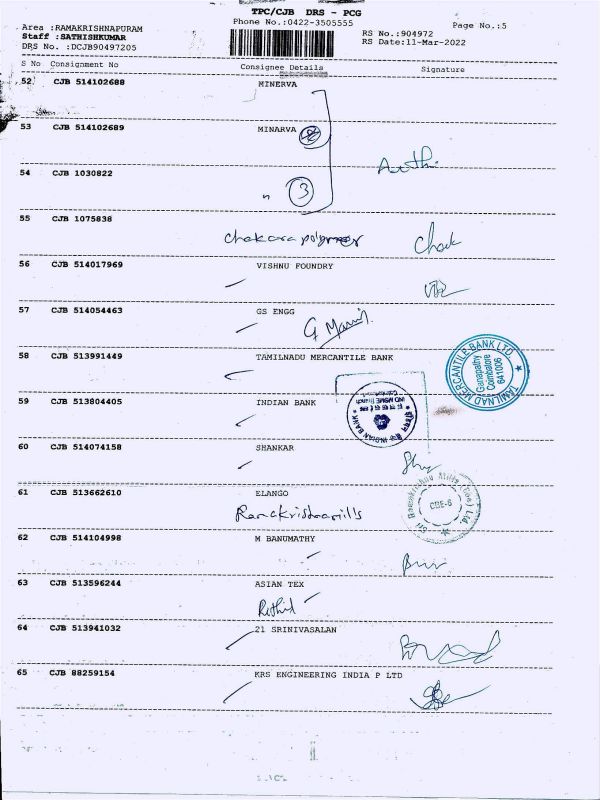 TPC/CJB DRS - PCG
Phone No.:0422-3505555
Page No.:5
Area :RAMAKRISHNAPURAM
Staff :SATHISHKUMAR
DRS No. :DCJB90497205
RS No.:904972
RS Date:11-Mar-2022
S No Consignment No Consignee Details Signature
52 CJB 514102688 MINERVA
53 CJB 514102689 MINARVA
54 CJB 1030822
3
55 CJB 1075838
Chakara polymer
56 CJB 514017969 VISHNU FOUNDRY
57 CJB 514054463 GS ENGG
58 CJB 513991449 TAMILNADU MERCANTILE BANK
TAMILNAD MERCANTILE BANK LTD.
Ganapathy
Coimbatore
641006
59 CJB 513804405 INDIAN BANK
INDIAN BANK
60 CJB 514074158 SHANKAR
61 CJB 513662610 ELANGO
Ramakrishna mills
Sri Ramakrishna Mills (Cbe) Ltd.
CBE-6
62 CJB 514104998 M BANUMATHY
63 CJB 513596244 ASIAN TEX
64 CJB 513941032 21 SRINIVASALAN
65 CJB 88259154 KRS ENGINEERING INDIA P LTD